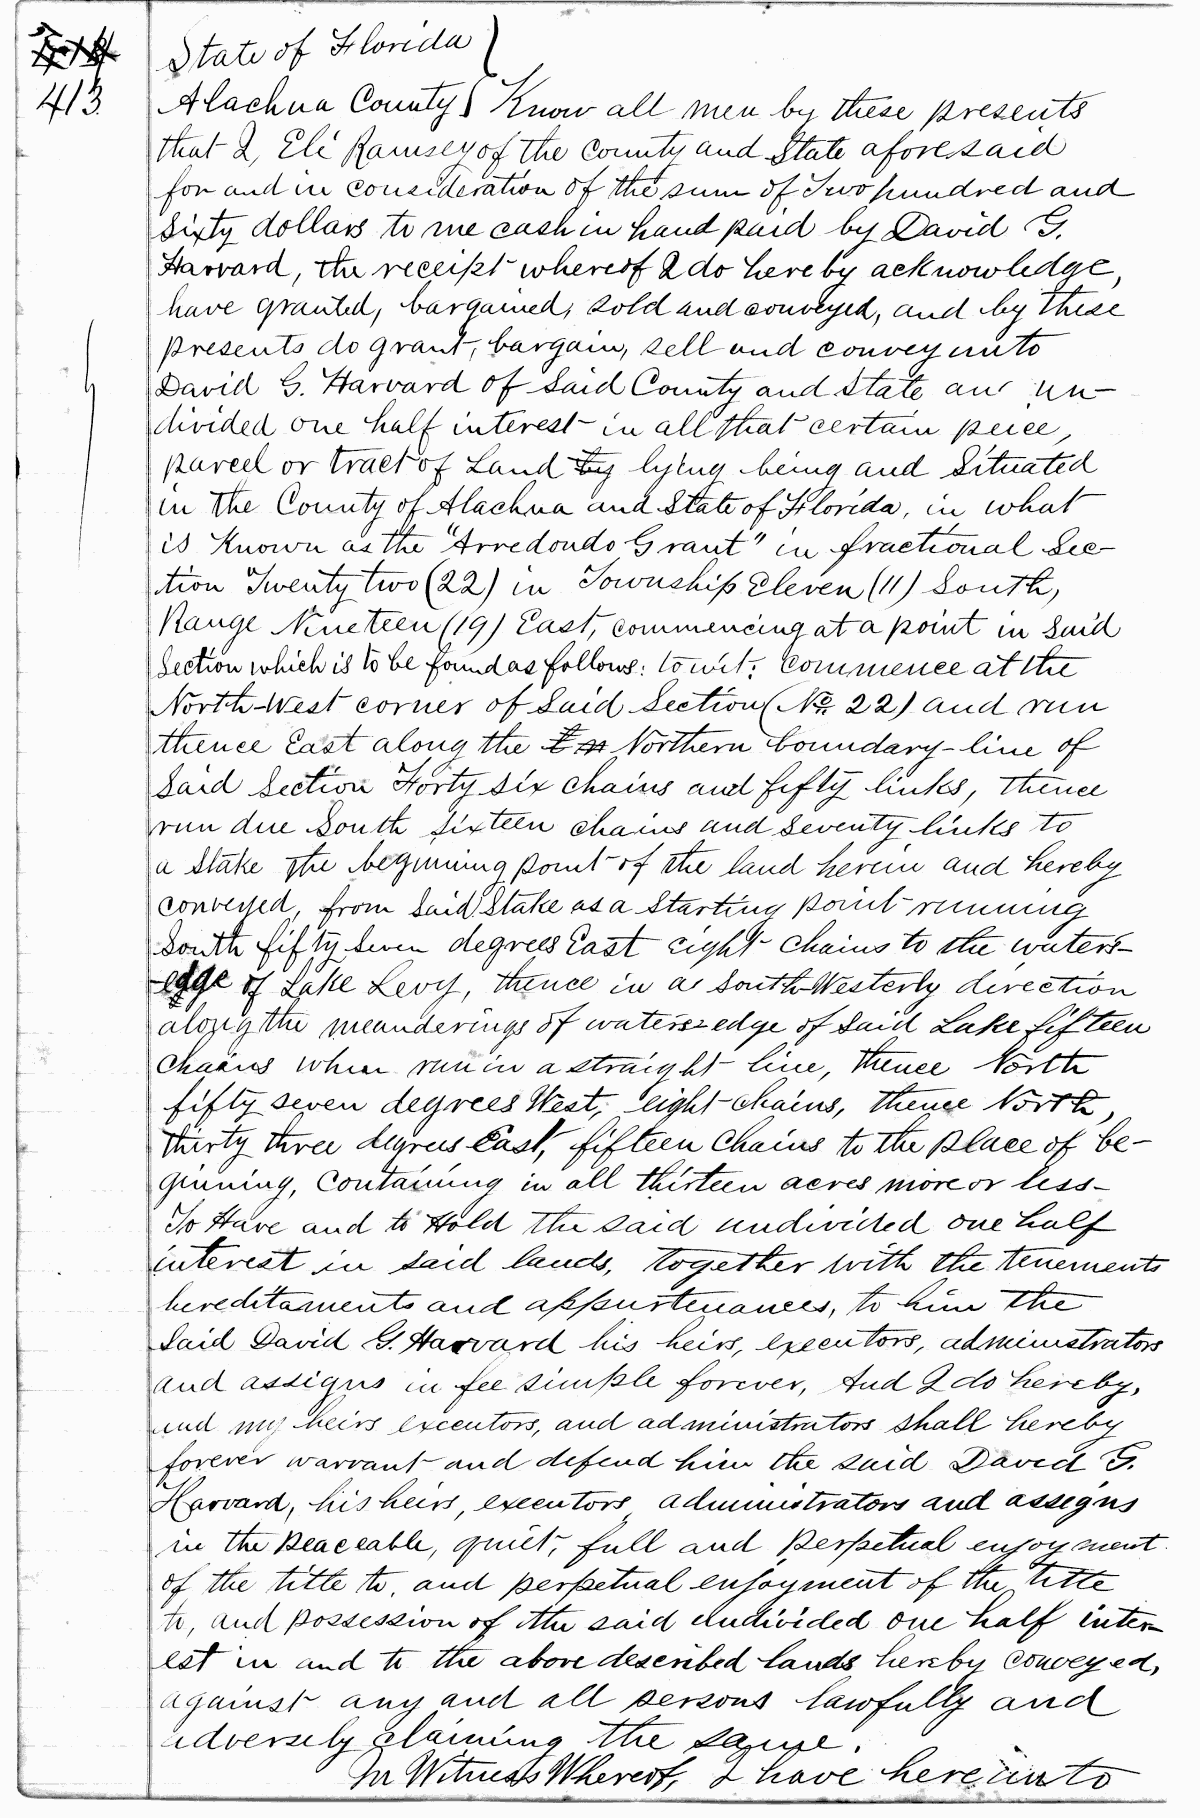 413
State of Florida
Alachua County Know all men by these presents
that I, Eli Ramsey of the County and State aforesaid
for and in consideration of the sum of Two hundred and
Sixty dollars to me cash in hand paid by David G.
Harvard, the receipt whereof I do hereby acknowledge,
have granted, bargained, sold and conveyed, and by these
presents do grant, bargain, sell and convey unto
David G. Harvard of Said County and State an un-
divided one half interest in all that certain peice,
parcel or tract of Land by lying being and Situated
in the County of Alachua and State of Florida, in what
is Known as the "Arredondo Grant" in fractional Sec-
tion Twenty two (22) in Township Eleven (11) South,
Range Nineteen (19) East, commencing at a point in Said
Section which is to be found as follows: to wit: commence at the
North-West corner of Said Section (No. 22) and run
thence East along the Northern boundary-line of
Said Section Forty six chains and fifty links, thence
run due South Sixteen chains and Seventy links to
a Stake the beginning point of the land herein and hereby
conveyed, from Said Stake as a Starting point running
South fifty Seven degrees East eight chains to the waters-
edge of Lake Levy, thence in a South-Westerly direction
along the meanderings of waters-edge of Said Lake fifteen
chains when run in a straight line, thence North
fifty seven degrees West, eight chains, thence North,
thirty three degrees East, fifteen Chains to the place of be-
ginning, Containing in all thirteen acres more or less-
To Have and to Hold the said undivided one half
interest in said lands, together with the tenements
hereditaments and appurtenances, to him the
Said David G. Harvard his heirs, executors, administrators
and assigns in fee simple forever, And I do hereby,
and my heirs executors, and administrators shall hereby
forever warrant and defend him the said David G.
Harvard, his heirs, executors, administrators and assigns
in the peaceable, quiet, full and perpetual enjoyment
of the title to, and perpetual enjoyment of the title
to, and possession of the said undivided one half inter-
est in and to the above described lands hereby conveyed,
against any and all persons lawfully and
adversely claiming the same.
In Witness Whereof, I have hereunto